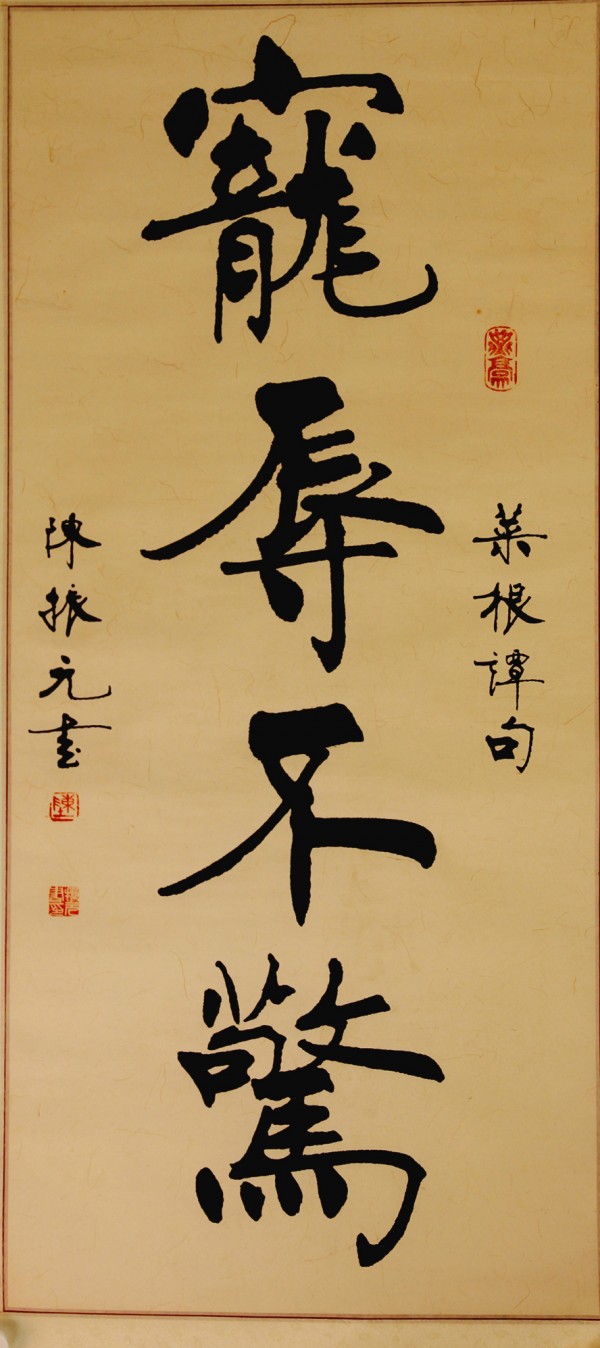 寵辱不驚
菜根譚句
陳振元書